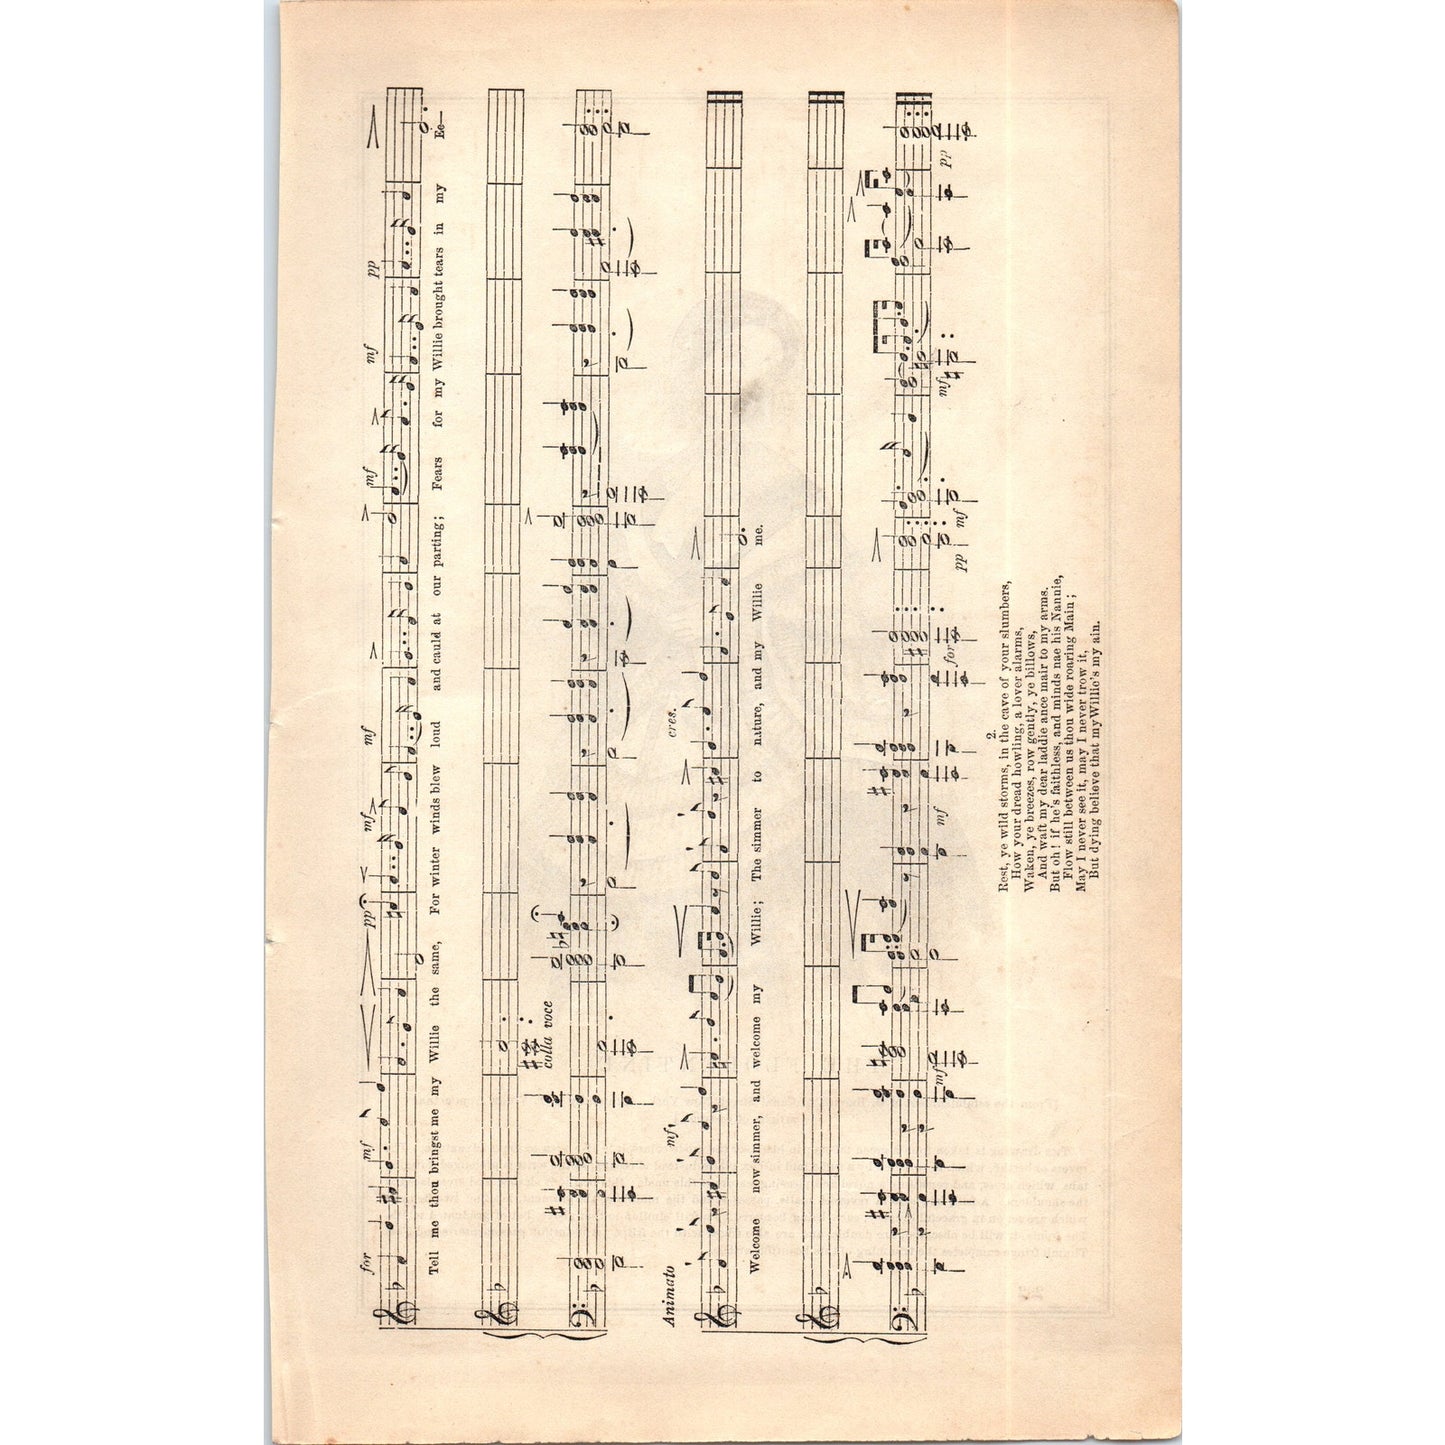 for mf mf mf mf mf mf pp
Tell me thou bringst me my Willie the same, For winter winds blew loud and cauld at our parting; Fears for my Willie brought tears in my Ee—
colla voce
Animato mf, cres.
Welcome now simmer, and welcome my Willie; The simmer to nature, and my Willie me.
mf mf for pp mf mf pp
2.
Rest, ye wild storms, in the cave of your slumbers,
How your dread howling, a lover alarms,
Waken, ye breezes, row gently, ye billows,
And waft my dear laddie ance mair to my arms.
But oh! if he's faithless, and minds nae his Nannie,
Flow still between us thou wide roaring Main;
May I never see it, may I never trow it,
But dying believe that my Willie's my ain.